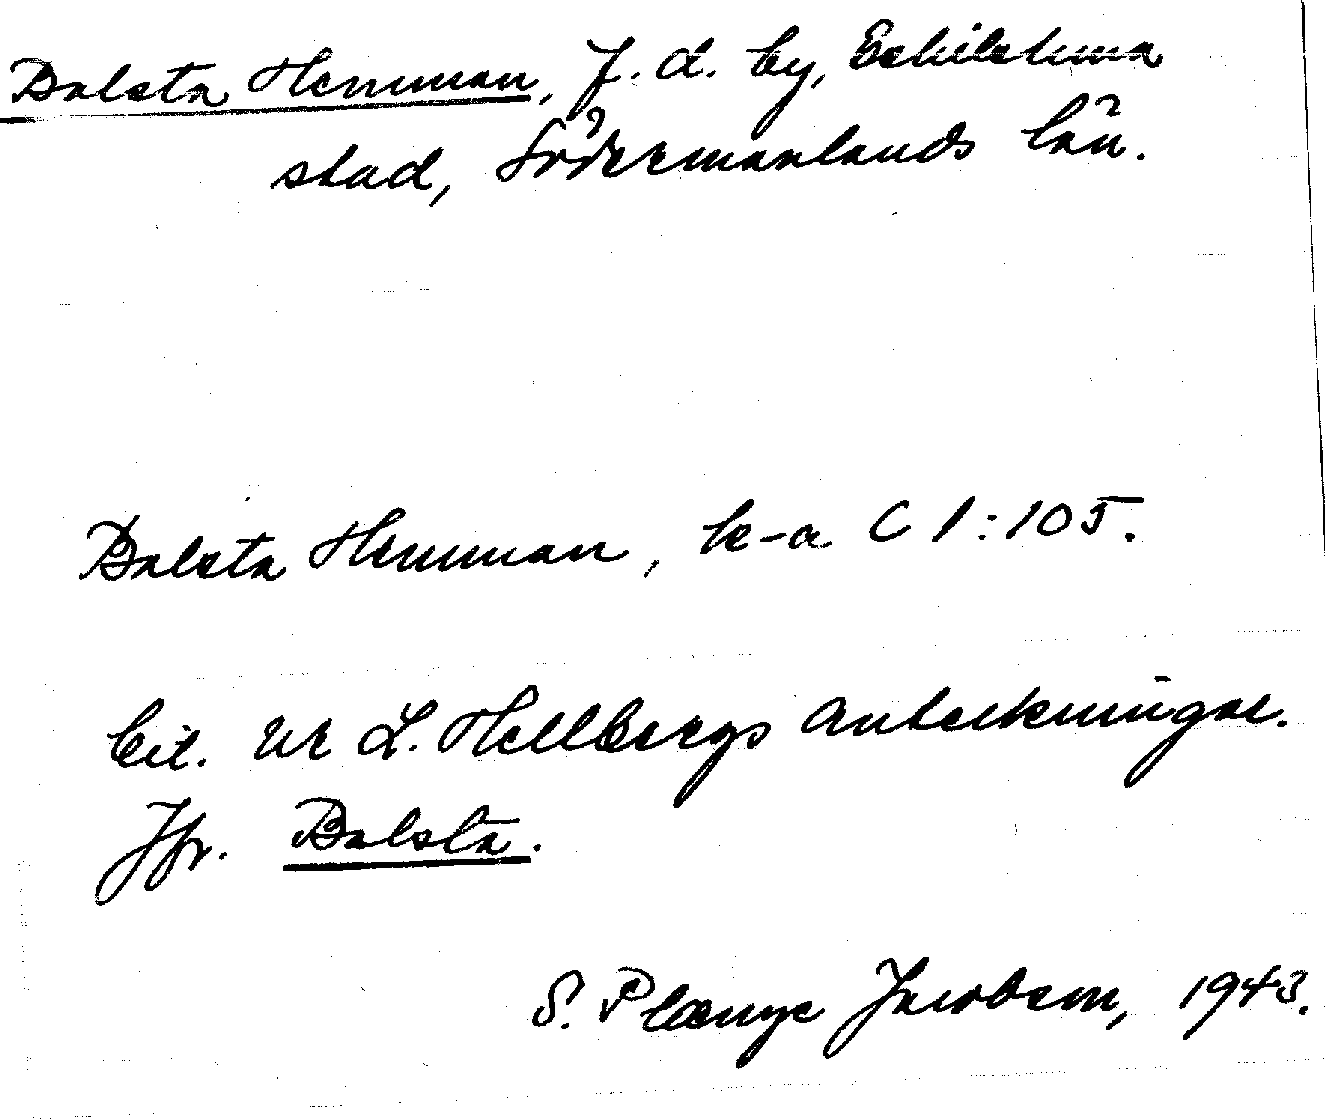 Balsta Hemman, f.d. by, Eskilstuna
stad, Södermanlands län.
Balsta Hemman, le-a C 1:105.
Cit. ur L. Hellbergs anteckningar.
Jfr. Balsta.
S. Plænge Jacobsen, 1943.